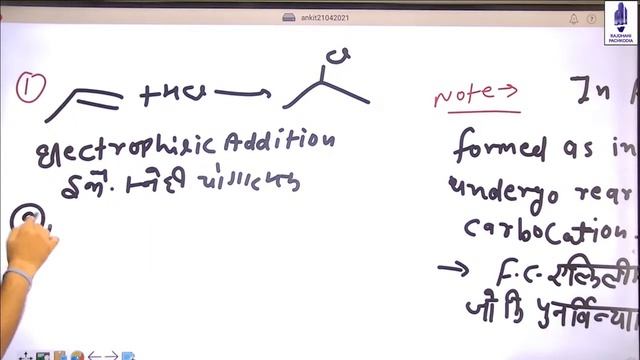 ankit21042021
RAJDHANI
PACHKODIA
① + HCl ⟶ Cl
Electrophilic Addition
Note →
In
formed as in
undergo rear
carbocation.
→ F.C. एल्किली
जो कि पुनर्विन्या